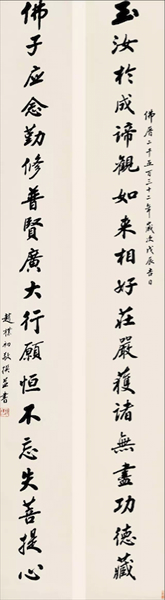 玉汝於成諦觀如来相好莊嚴獲諸無盡功德藏
佛曆二千五百三十二年歲次戊辰吉日
佛子应念勤修普賢廣大行願恒不忘失菩提心
趙樸初敬撰並書